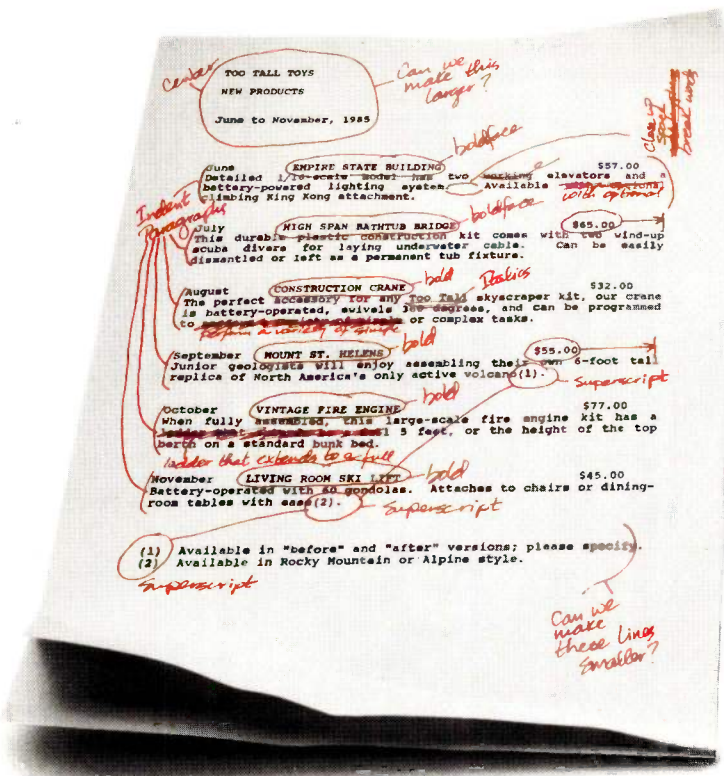 center
TOO TALL TOYS
Can we
make this
larger?
NEW PRODUCTS
June to November, 1985
Close up
space
break words
boldface
June EMPIRE STATE BUILDING $57.00
Detailed 1/10-scale model has two working elevators and a
battery-powered lighting system. Available
with optional
climbing King Kong attachment.
Indent
Paragraphs
boldface
July HIGH SPAN BATHTUB BRIDGE $65.00
This durable plastic construction kit comes with two wind-up
scuba divers for laying underwater cable. Can be easily
dismantled or left as a permanent tub fixture.
bold
Italics
August CONSTRUCTION CRANE $32.00
The perfect accessory for any Too Tall skyscraper kit, our crane
is battery-operated, swivels 360 degrees, and can be programmed
to or complex tasks.
perform a variety of simple
bold
September MOUNT ST. HELENS $55.00
Junior geologists will enjoy assembling their own 6-foot tall
replica of North America's only active volcano(1).
Superscript
bold
October VINTAGE FIRE ENGINE $77.00
When fully assembled, this large-scale fire engine kit has a
5 feet, or the height of the top
berth on a standard bunk bed.
ladder that extends to a full
bold
November LIVING ROOM SKI LIFT $45.00
Battery-operated with 60 gondolas. Attaches to chairs or dining-
room tables with ease(2).
Superscript
(1) Available in "before" and "after" versions; please specify.
(2) Available in Rocky Mountain or Alpine style.
Superscript
Can we
make
these lines
smaller?